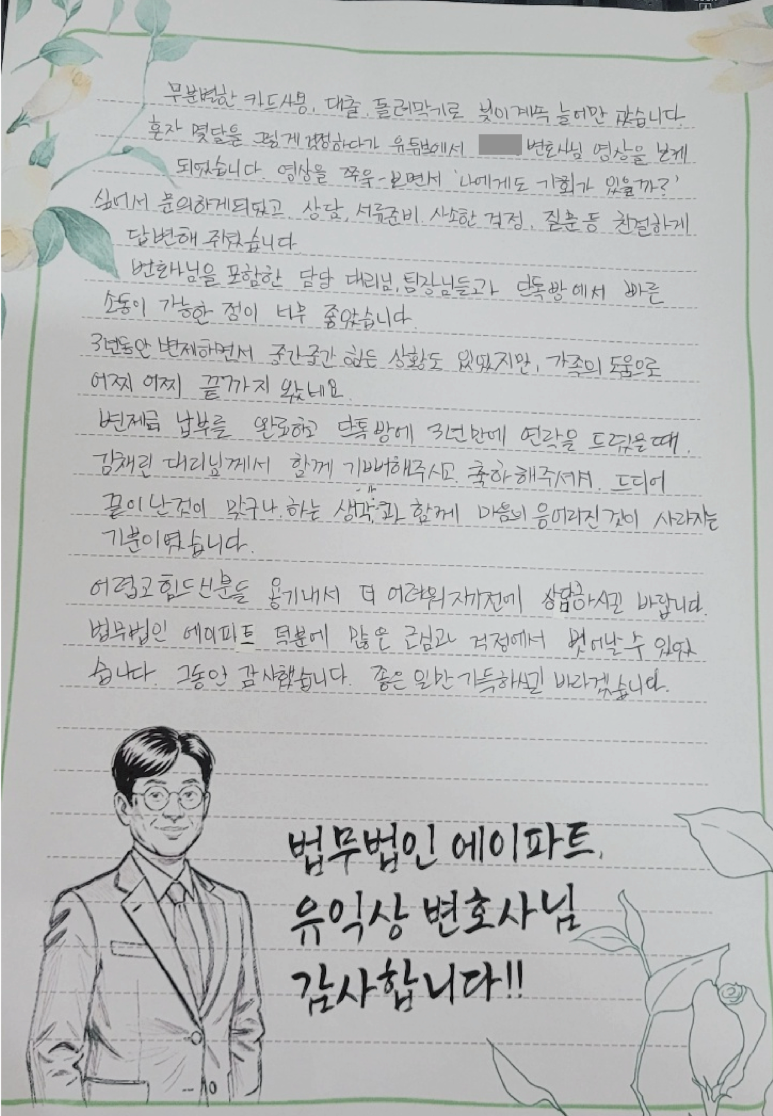 무분별한 카드사용, 대출, 돌려막기로 빚이 계속 늘어만 갔습니다.
혼자 몇달을 그렇게 걱정하다가 유튜브에서 변호사님 영상을 보게
되었습니다. 영상을 쭈욱- 보면서 '나에게도 기회가 있을까?'
싶어서 문의하게되었고 상담, 서류준비 사소한 걱정, 질문 등 친절하게
답변해 주셨습니다
변호사님을 포함한 담당 대리님, 팀장님들과 단톡방에서 빠른
소통이 가능한 점이 너무 좋았습니다.
3년동안 변제하면서 중간중간 힘든 상황도 있었지만, 가족의 도움으로
어찌 어찌 끝까지 왔네요.
변제금 납부를 완료하고 단톡방에 3년만에 연락을 드렸을때,
김채린 대리님께서 함께 기뻐해주시고 축하해주셔서, 드디어
끝이 난것이 맞구나. 하는 생각과 함께 마음의 응어리진 것이 사라지는
기분이였습니다.
어렵고 힘드신분들 용기내서 더 어려워지기전에 상담하시길 바랍니다.
법무법인 에이파트 덕분에 많은 근심과 걱정에서 벗어날 수 있었
습니다. 그동안 감사했습니다. 좋은 일만 가득하시길 바라겠습니다.
법무법인 에이파트,
유익상 변호사님
감사합니다!!